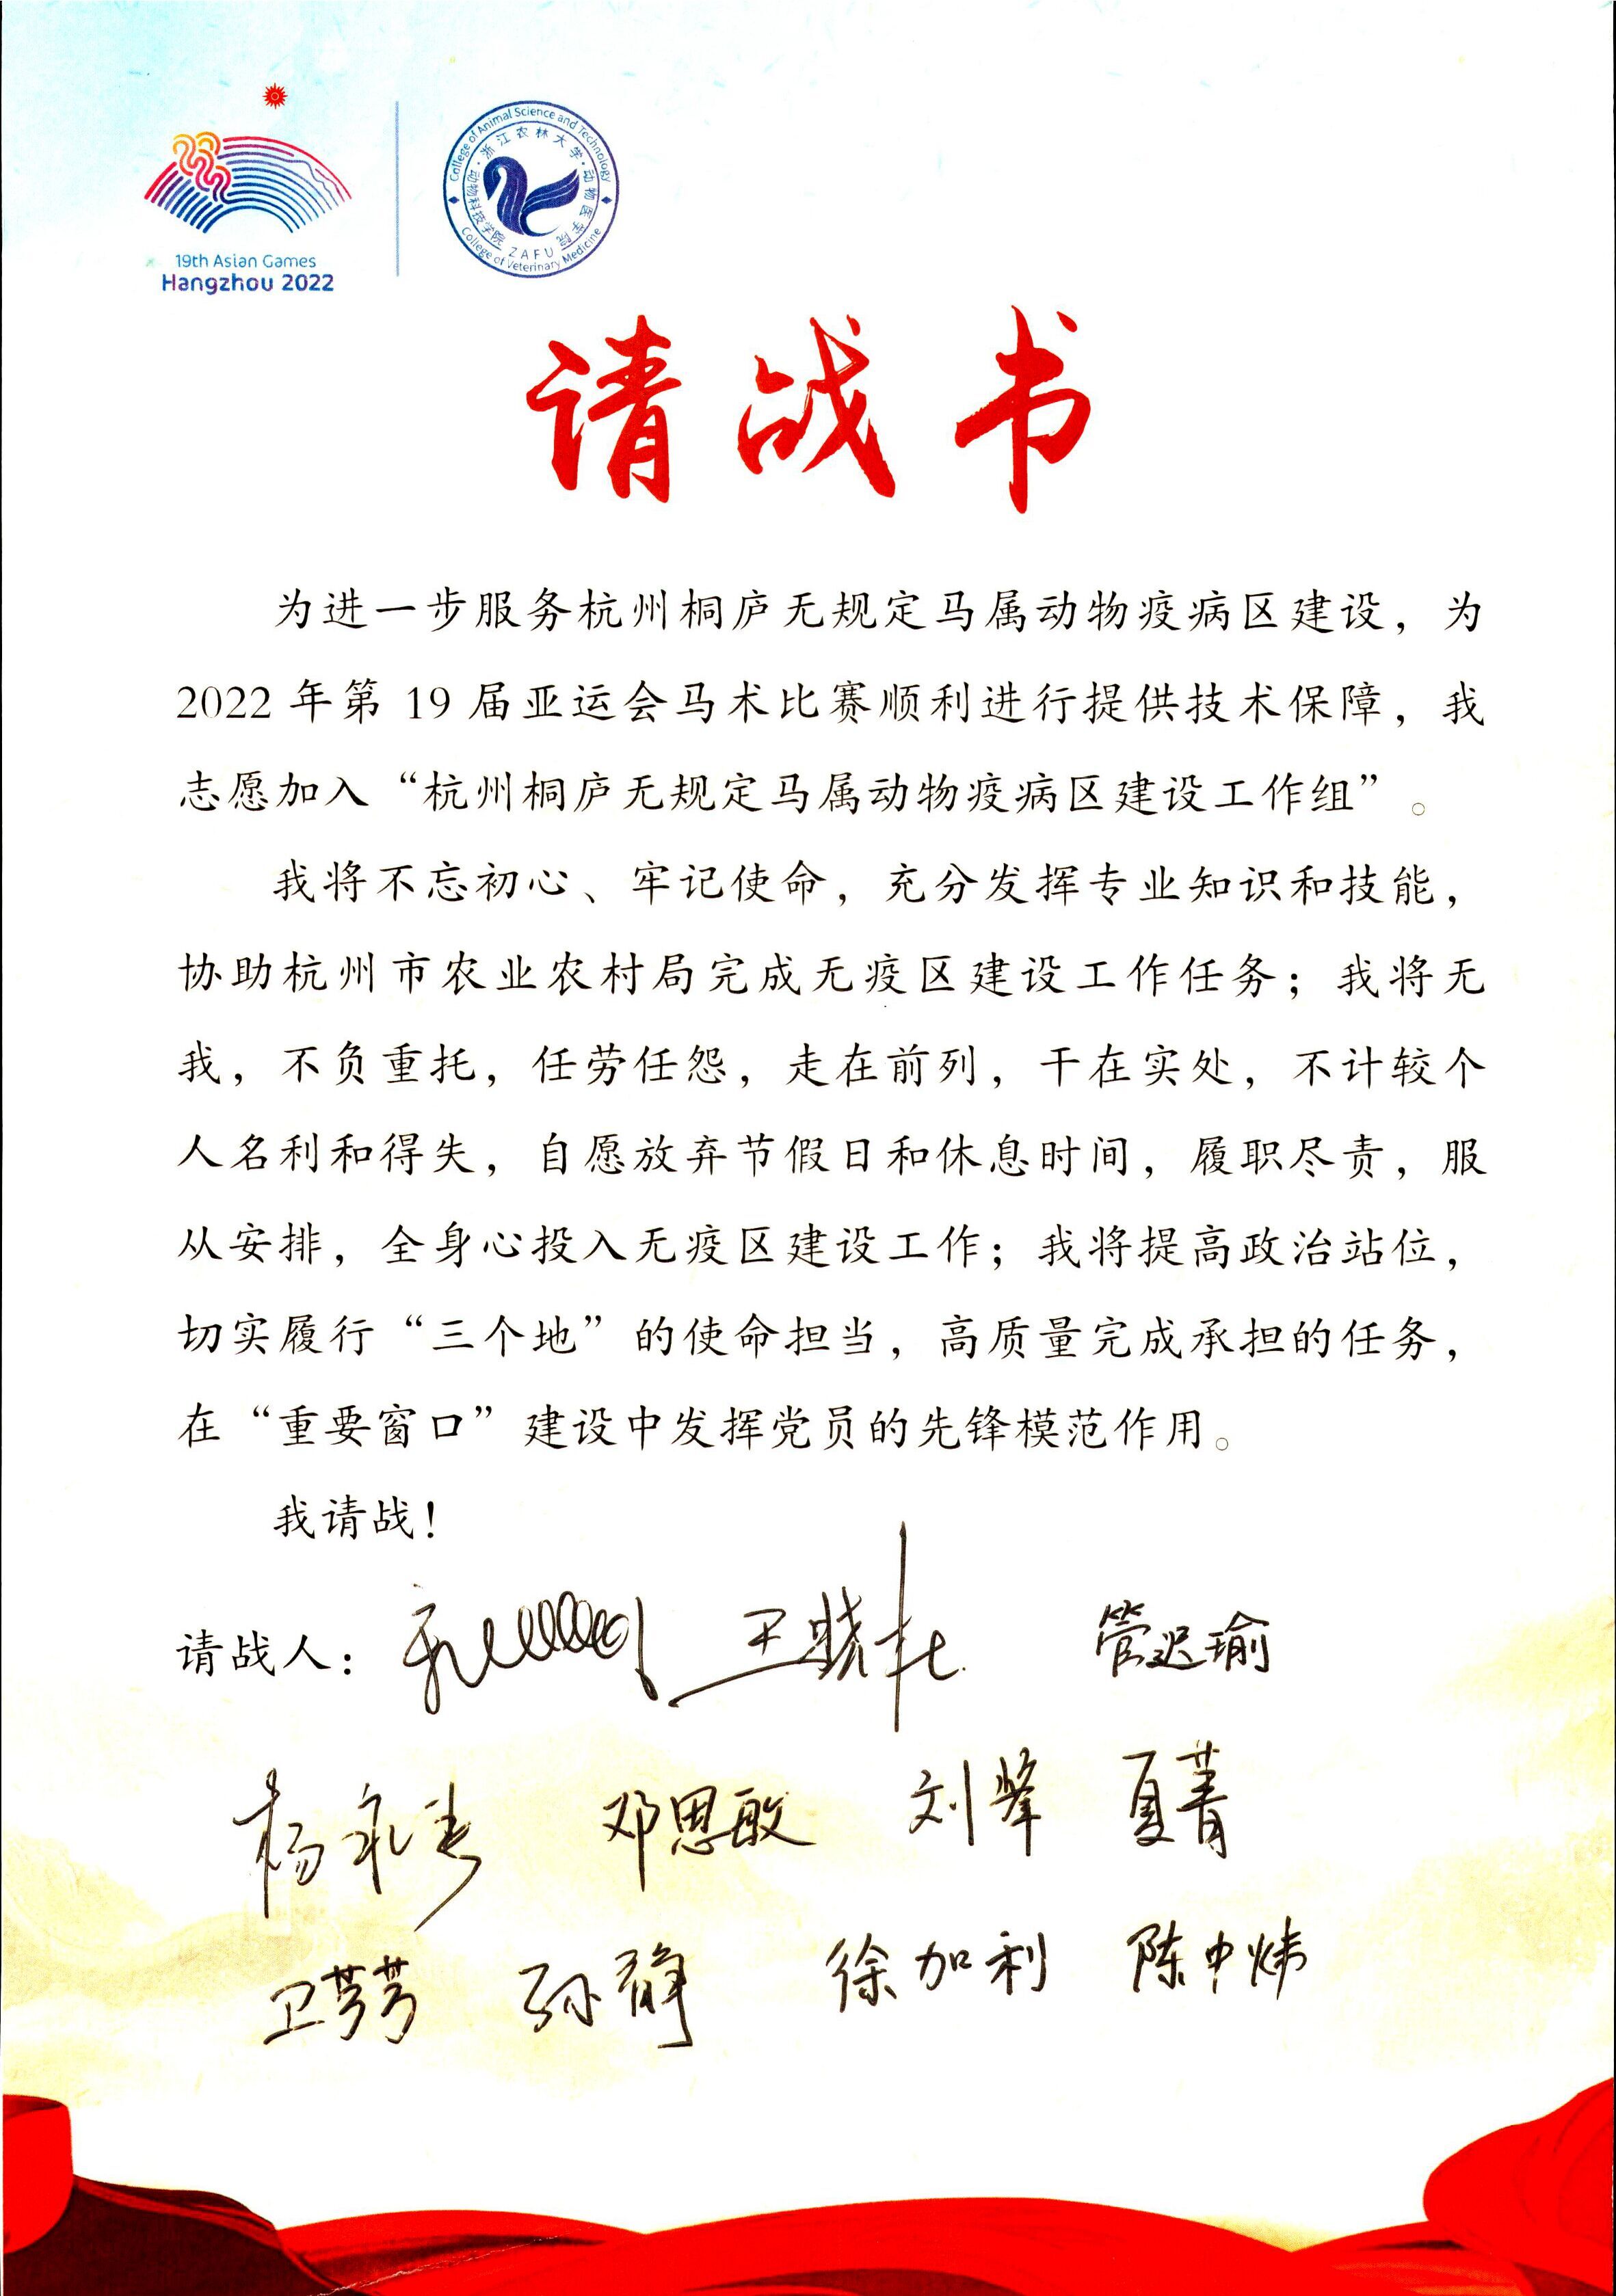 19th Asian Games
Hangzhou 2022
College of Animal Science and Technology
浙江农林大学
动物科技学院
动物医学院
ZAFU
College of Veterinary Medicine
请战书
为进一步服务杭州桐庐无规定马属动物疫病区建设，为
2022 年第 19 届亚运会马术比赛顺利进行提供技术保障，我
志愿加入“杭州桐庐无规定马属动物疫病区建设工作组”。
我将不忘初心、牢记使命，充分发挥专业知识和技能，
协助杭州市农业农村局完成无疫区建设工作任务；我将无
我，不负重托，任劳任怨，走在前列，干在实处，不计较个
人名利和得失，自愿放弃节假日和休息时间，履职尽责，服
从安排，全身心投入无疫区建设工作；我将提高政治站位，
切实履行“三个地”的使命担当，高质量完成承担的任务，
在“重要窗口”建设中发挥党员的先锋模范作用。
我请战！
请战人： 王晓杜 管迟瑜
杨永春 邓思敏 刘峰 夏菁
卫芳芳 孙静 徐加利 陈中炜